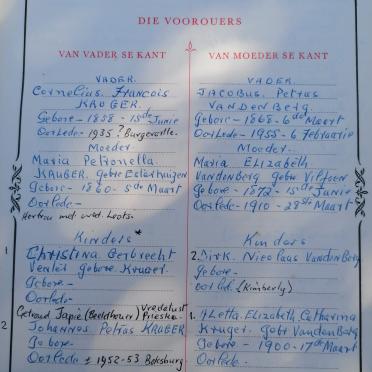 DIE VOOROUERS
VAN VADER SE KANT
VADER.
Cornelius. Francois
KRUGER.
Gebore - 1858 - 15de Junie
Oorlede - 1935? Burgerville.
Moeder
Maria Petronella
KRUGER. gebore
Gebore - 1860 - 5de Maart
Oorlede -
Hertrou met wed. Loots.
Kinders *
1 Christina Gerbrecht
Venter Gebore Kruger.
Gebore -
Oorlede -
Getroud Japie (Beeldhouer) Vredelust Prieska.
2 Johannes Petrus KRUGER
Gebore -
Oorlede ± 1952-53 Boksburg
VAN MOEDER SE KANT
VADER.
JACOBUS. Petrus
VANDENBERG.
Gebore - 1868 - 6de Maart
Oorlede - 1955 - 6 Februarie
Moeder.
Maria ELIZABETH
Vandenberg gebr Viljoen
Gebore - 1872 - 15de Junie
Oorlede - 1910 - 28ste Maart
Kinders
2. Dirk. Nicolaas VandenBerg
Gebore -
Oorlede (Kimberly)
1. Aletta. Elizabeth. Catharina
Kruger. gebr VandenBerg
Gebore - 1900 - 17de Maart
Oorlede -